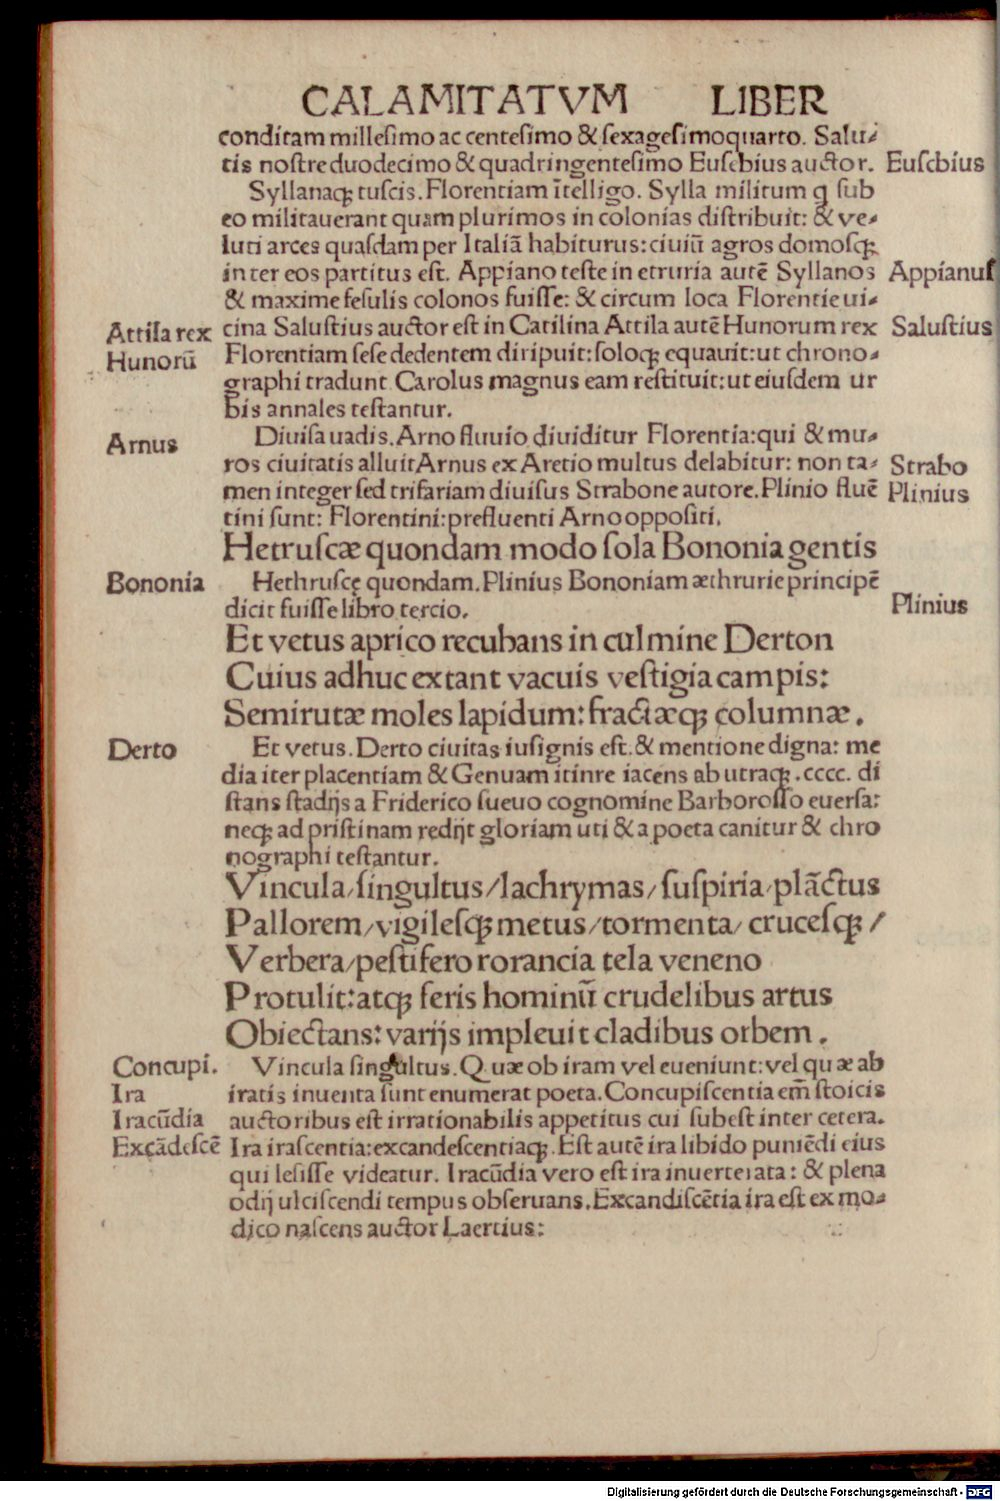 CALAMITATVM LIBER
conditam millesimo ac centesimo & sexagesimoquarto. Salu-
tis nostre duodecimo & quadringentesimo Eusebius auctor. Eusebius
Syllanaqꝫ tuscis. Florentiam ītelligo. Sylla militum ꝗ sub
eo militauerant quam plurimos in colonias distribuit: & ve-
luti arces quasdam per Italiā habiturus: ciuiū agros domosqꝫ
inter eos partitus est. Appiano teste in etruria autē Syllanos Appianus
& maxime fesulis colonos fuisse: & circum loca Florentie ui-
Attila rex cina Salustius auctor est in Catilina Attila autē Hunorum rex Salustius
Hunorū Florentiam sese dedentem diripuit: soloqꝫ equauit: ut chrono-
graphi tradunt Carolus magnus eam restituit: ut eiusdem ur
bis annales testantur.
Arnus Diuisa uadis. Arno fluuio diuiditur Florentia: qui & mu-
ros ciuitatis alluit Arnus ex Aretio multus delabitur: non ta- Strabo
men integer sed trifariam diuisus Strabone autore. Plinio fluē Plinius
tini sunt: Florentini: prefluenti Arno oppositi.
Hetruscæ quondam modo sola Bononia gentis
Bononia Hethruscę quondam. Plinius Bononiam æthrurie principē
dicit fuisse libro tercio. Plinius
Et vetus aprico recubans in culmine Derton
Cuius adhuc extant vacuis vestigia campis:
Semirutæ moles lapidum: fractæqꝫ columnæ.
Derto Et vetus. Derto ciuitas iusignis est. & mentione digna: me
dia iter placentiam & Genuam itinre iacens ab utraqꝫ. cccc. di
stans stadijs a Friderico sueuo cognomine Barborosso euersa:
neqꝫ ad pristinam redijt gloriam uti & a poeta canitur & chro
nographi testantur.
Vincula/singultus/lachrymas/suspiria/plāctus
Pallorem/vigilesqꝫ metus/tormenta/crucesqꝫ/
Verbera/pestifero rorancia tela veneno
Protulit: atqꝫ feris hominū crudelibus artus
Obiectans: varijs impleuit cladibus orbem.
Concupi. Vincula singultus. Quæ ob iram vel eueniunt: vel quæ ab
Ira iratis inuenta sunt enumerat poeta. Concupiscentia em̄ stoicis
Iracūdia auctoribus est irrationabilis appetitus cui subest inter cetera.
Excādescē Ira irascentia: excandescentiaqꝫ. Est autē ira libido puniēdi eius
qui lesisse videatur. Iracūdia vero est ira inuerterata: & plena
odij ulciscendi tempus obseruans. Excandiscētia ira est ex mo-
dico nascens auctor Laertius:
Digitalisierung gefördert durch die Deutsche Forschungsgemeinschaft - DFG